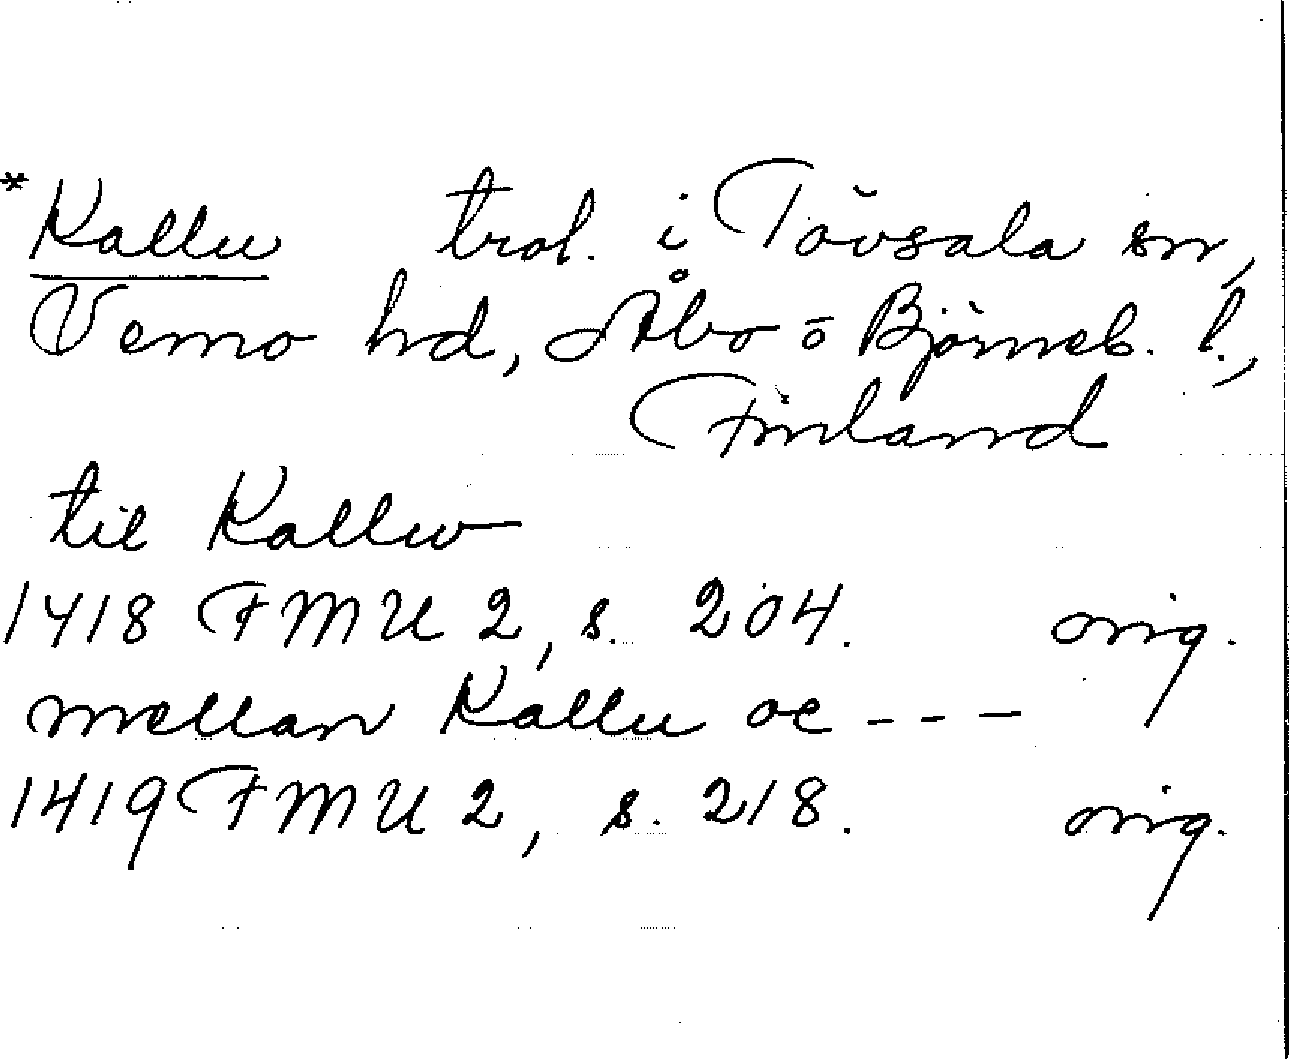 *Kallu trol. i Tövsala sn,
Vemo hd, Åbo o Björneb. l.,
Finland
til Kallu
1418 FMU 2, s. 204. orig.
mellan Kallu oc - - -
1419 FMU 2, s. 218. orig.